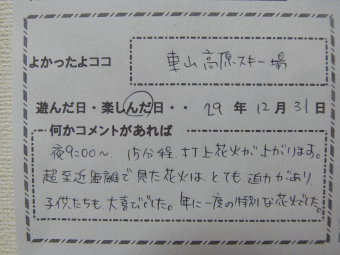 よかったよココ 車山高原スキー場
遊んだ日・楽しんだ日・・ 29 年 12 月 31 日
何かコメントがあれば
夜9:00〜、15分程、打上花火が上がります。
超至近距離で見た花火は、とても迫力があり
子供たちも大喜びでした。年に一度の特別な花火でした。